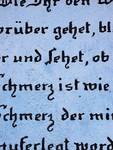 Die Ihr den W
orüber gehet, bl
er und sehet, ob
Schmerz ist wie
Schmerz der mir
auferlegt word